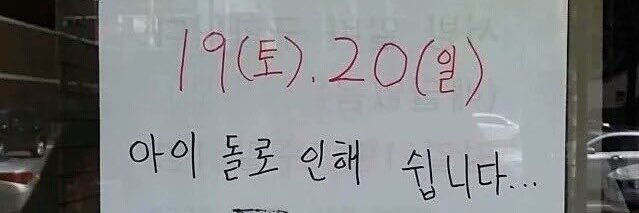 19(토). 20(일)
아이 돌로 인해 쉽니다...